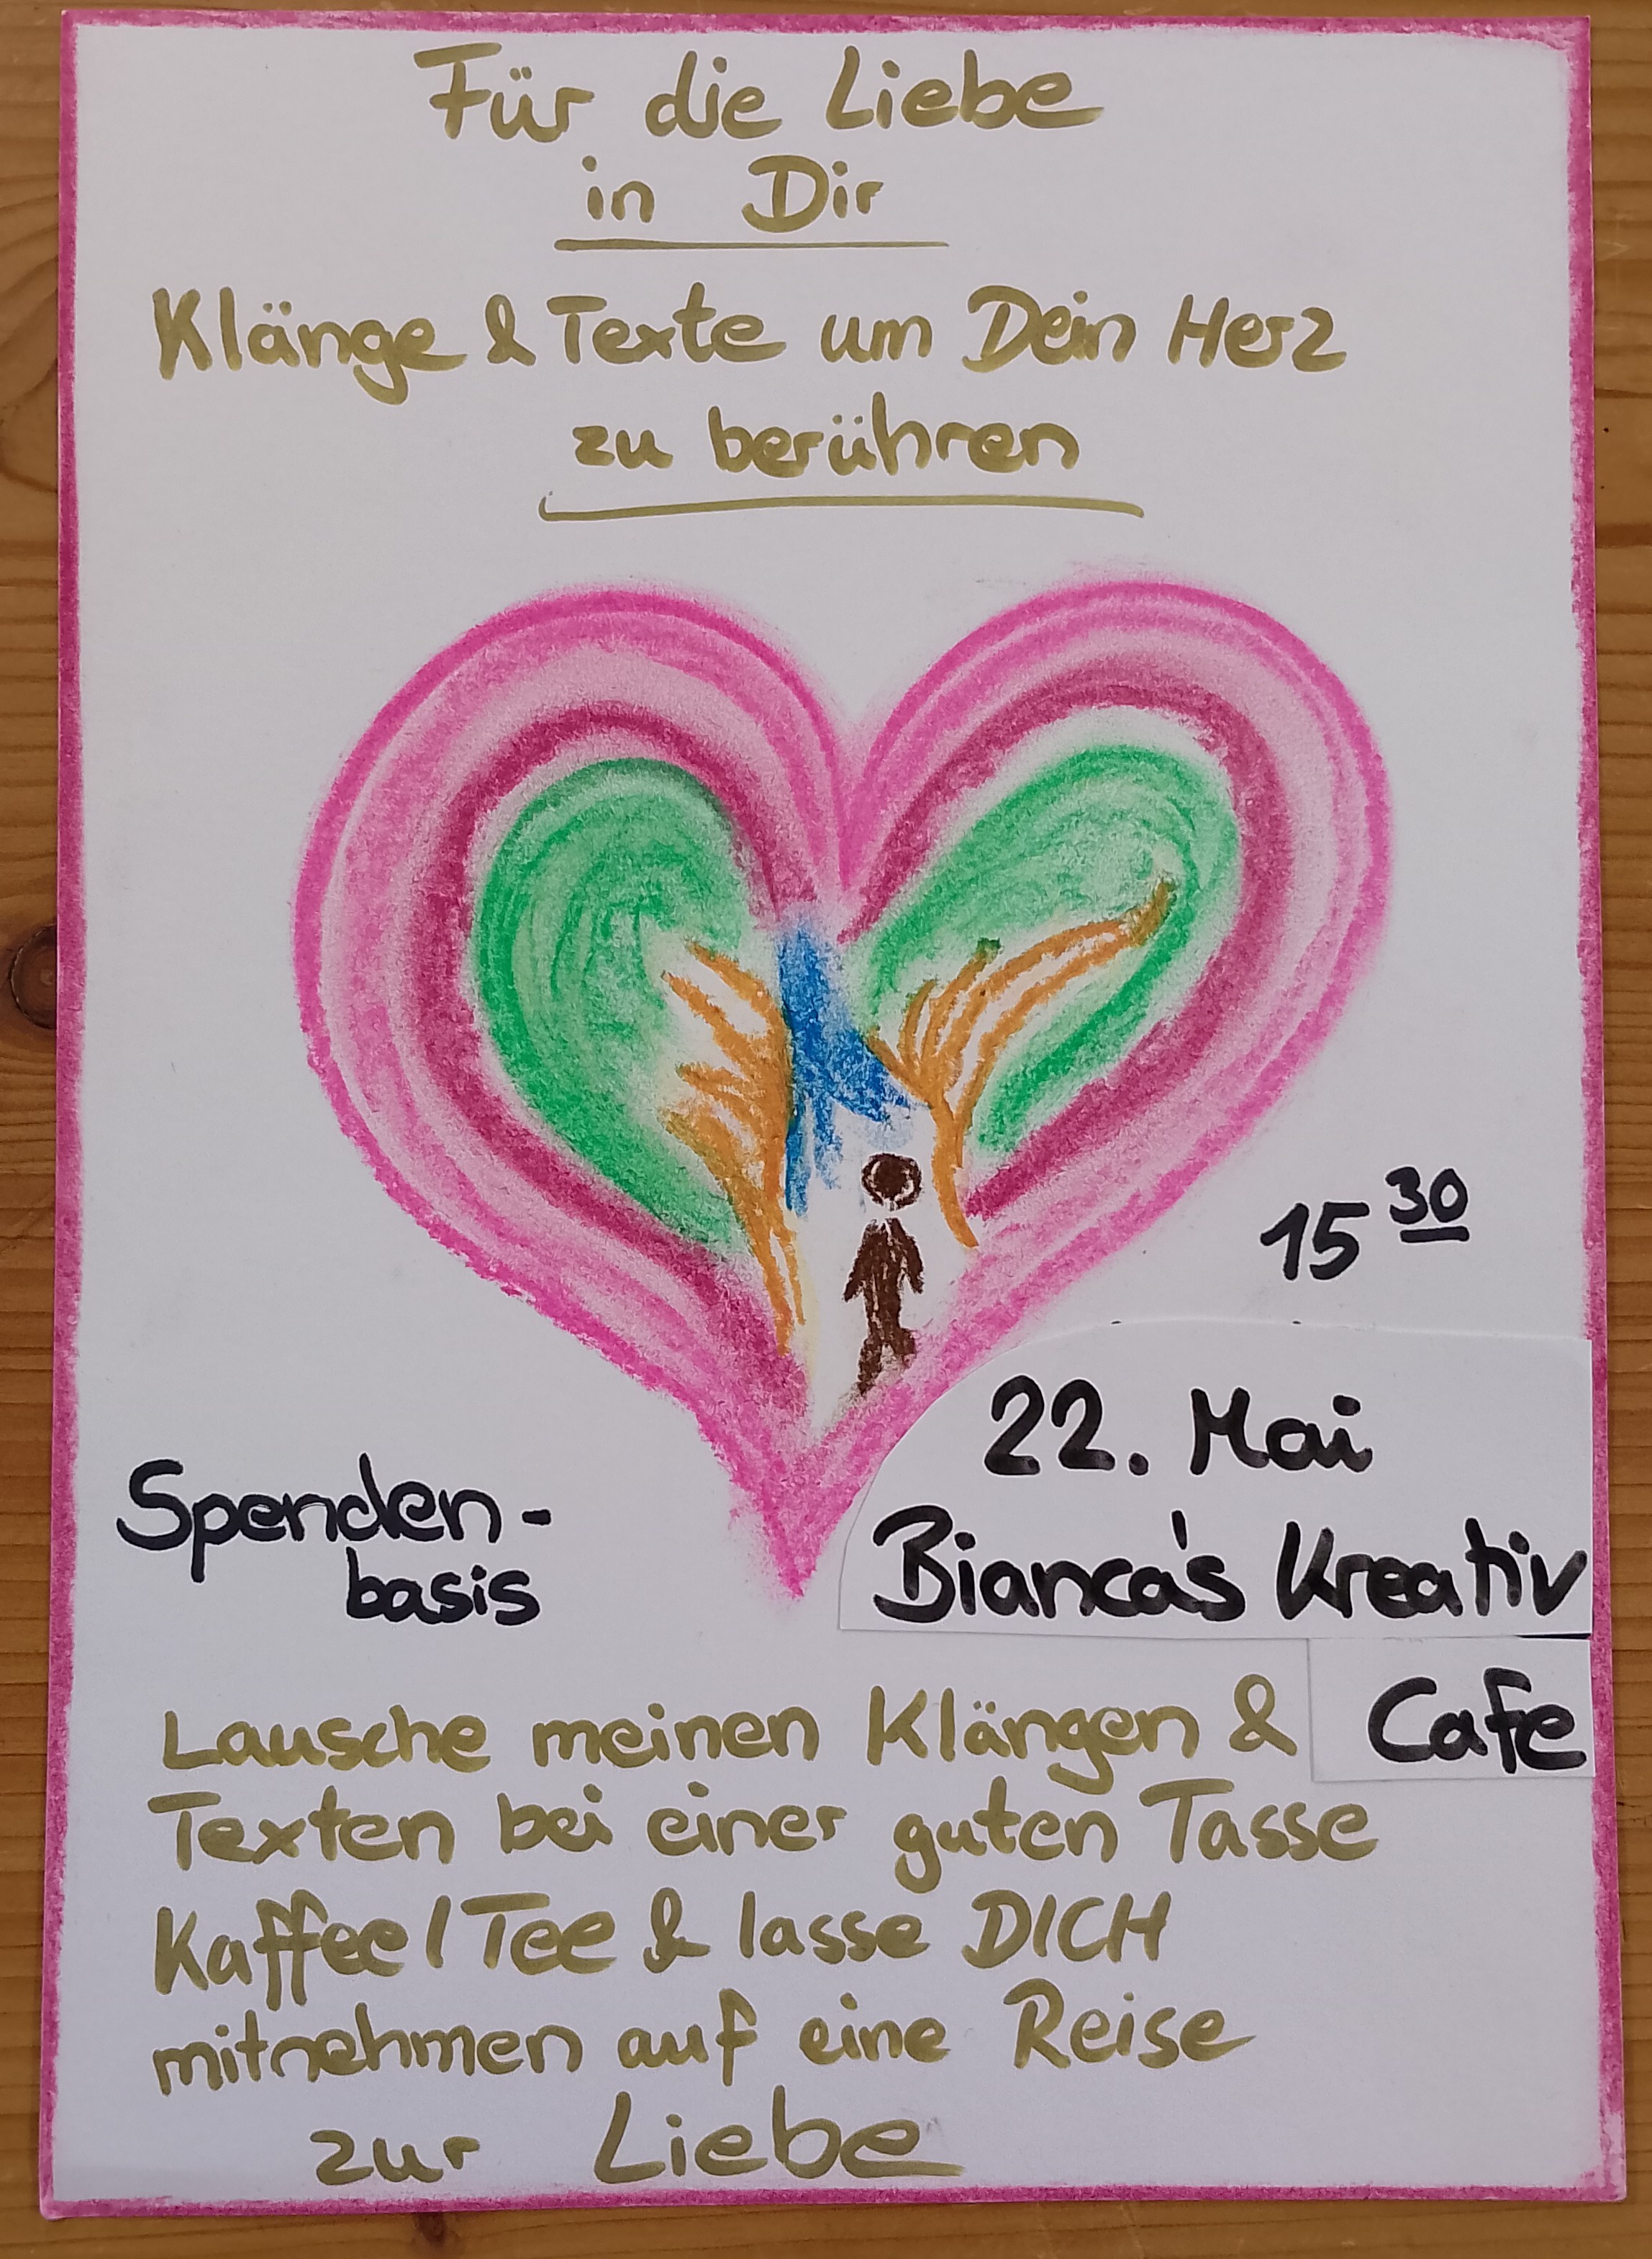 Für die Liebe
in Dir
Klänge & Texte um Dein Herz
zu berühren
15 30
22. Mai
Bianca's Kreativ
Cafe
Spenden-
basis
Lausche meinen Klängen &
Texten bei einer guten Tasse
Kaffee/Tee & lasse DICH
mitnehmen auf eine Reise
zur Liebe